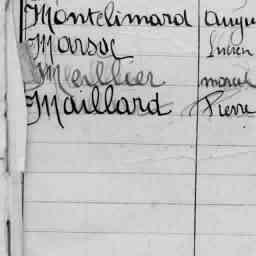 Montelimard Augu
Marsac Lucien
Meillier marcel
Maillard Pierre